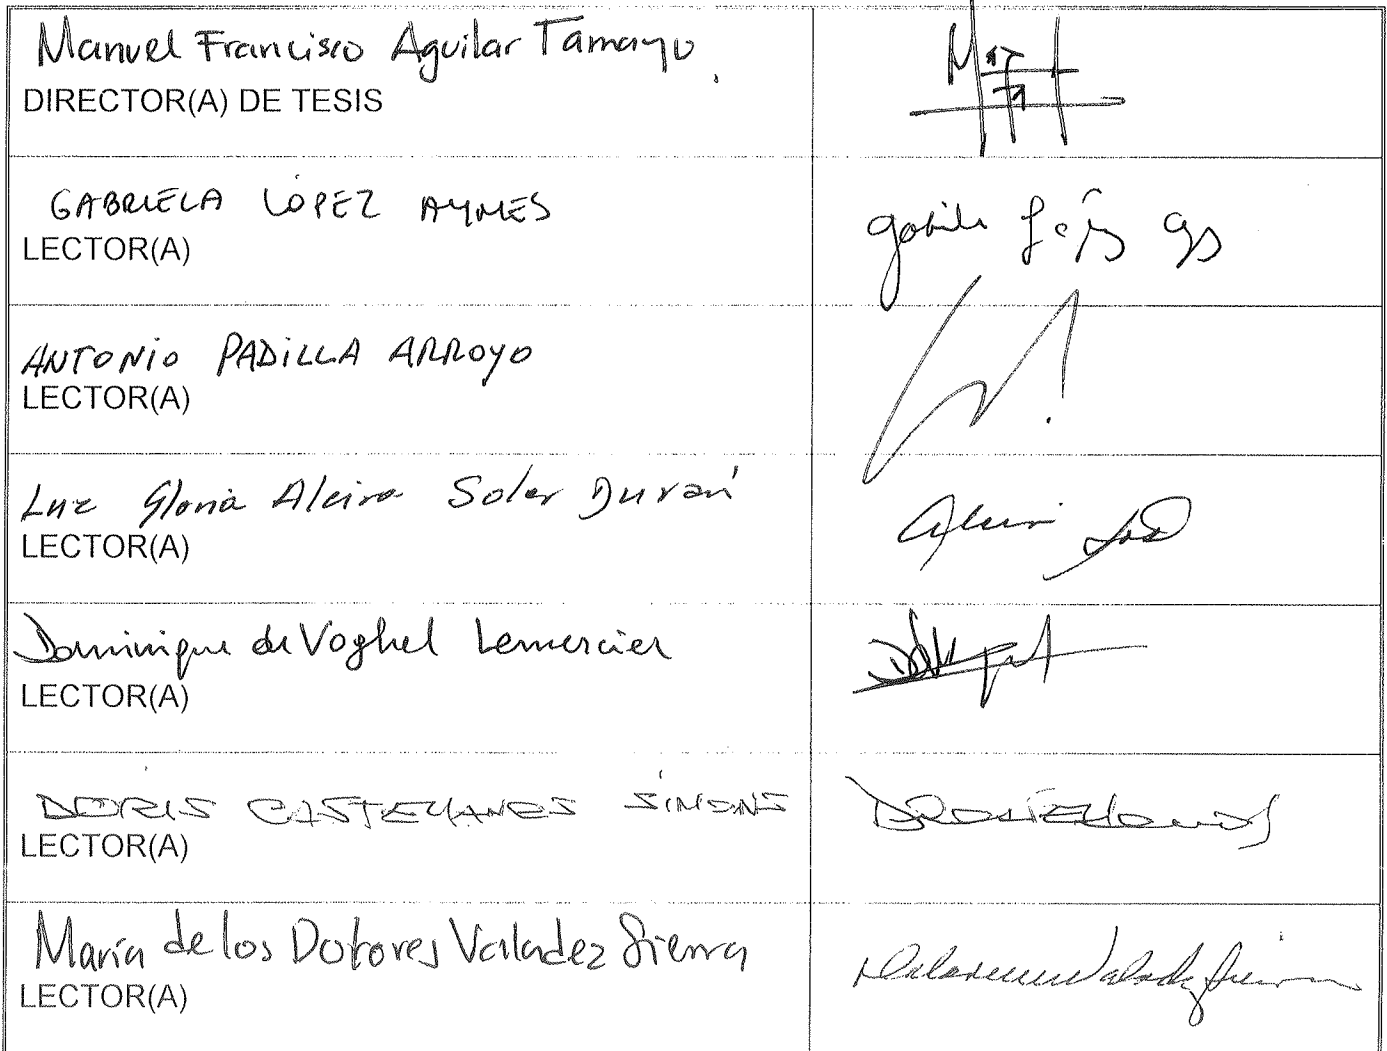 Manuel Francisco Aguilar Tamayo
DIRECTOR(A) DE TESIS
GABRIELA LÓPEZ AYMES
LECTOR(A)
ANTONIO PADILLA ARROYO
LECTOR(A)
Luz Gloria Alcira Soler Durán
LECTOR(A)
Dominique de Voghel Lemercier
LECTOR(A)
DORIS CASTELLANOS SIMONS
LECTOR(A)
María de los Dolores Valadez Sierra
LECTOR(A)